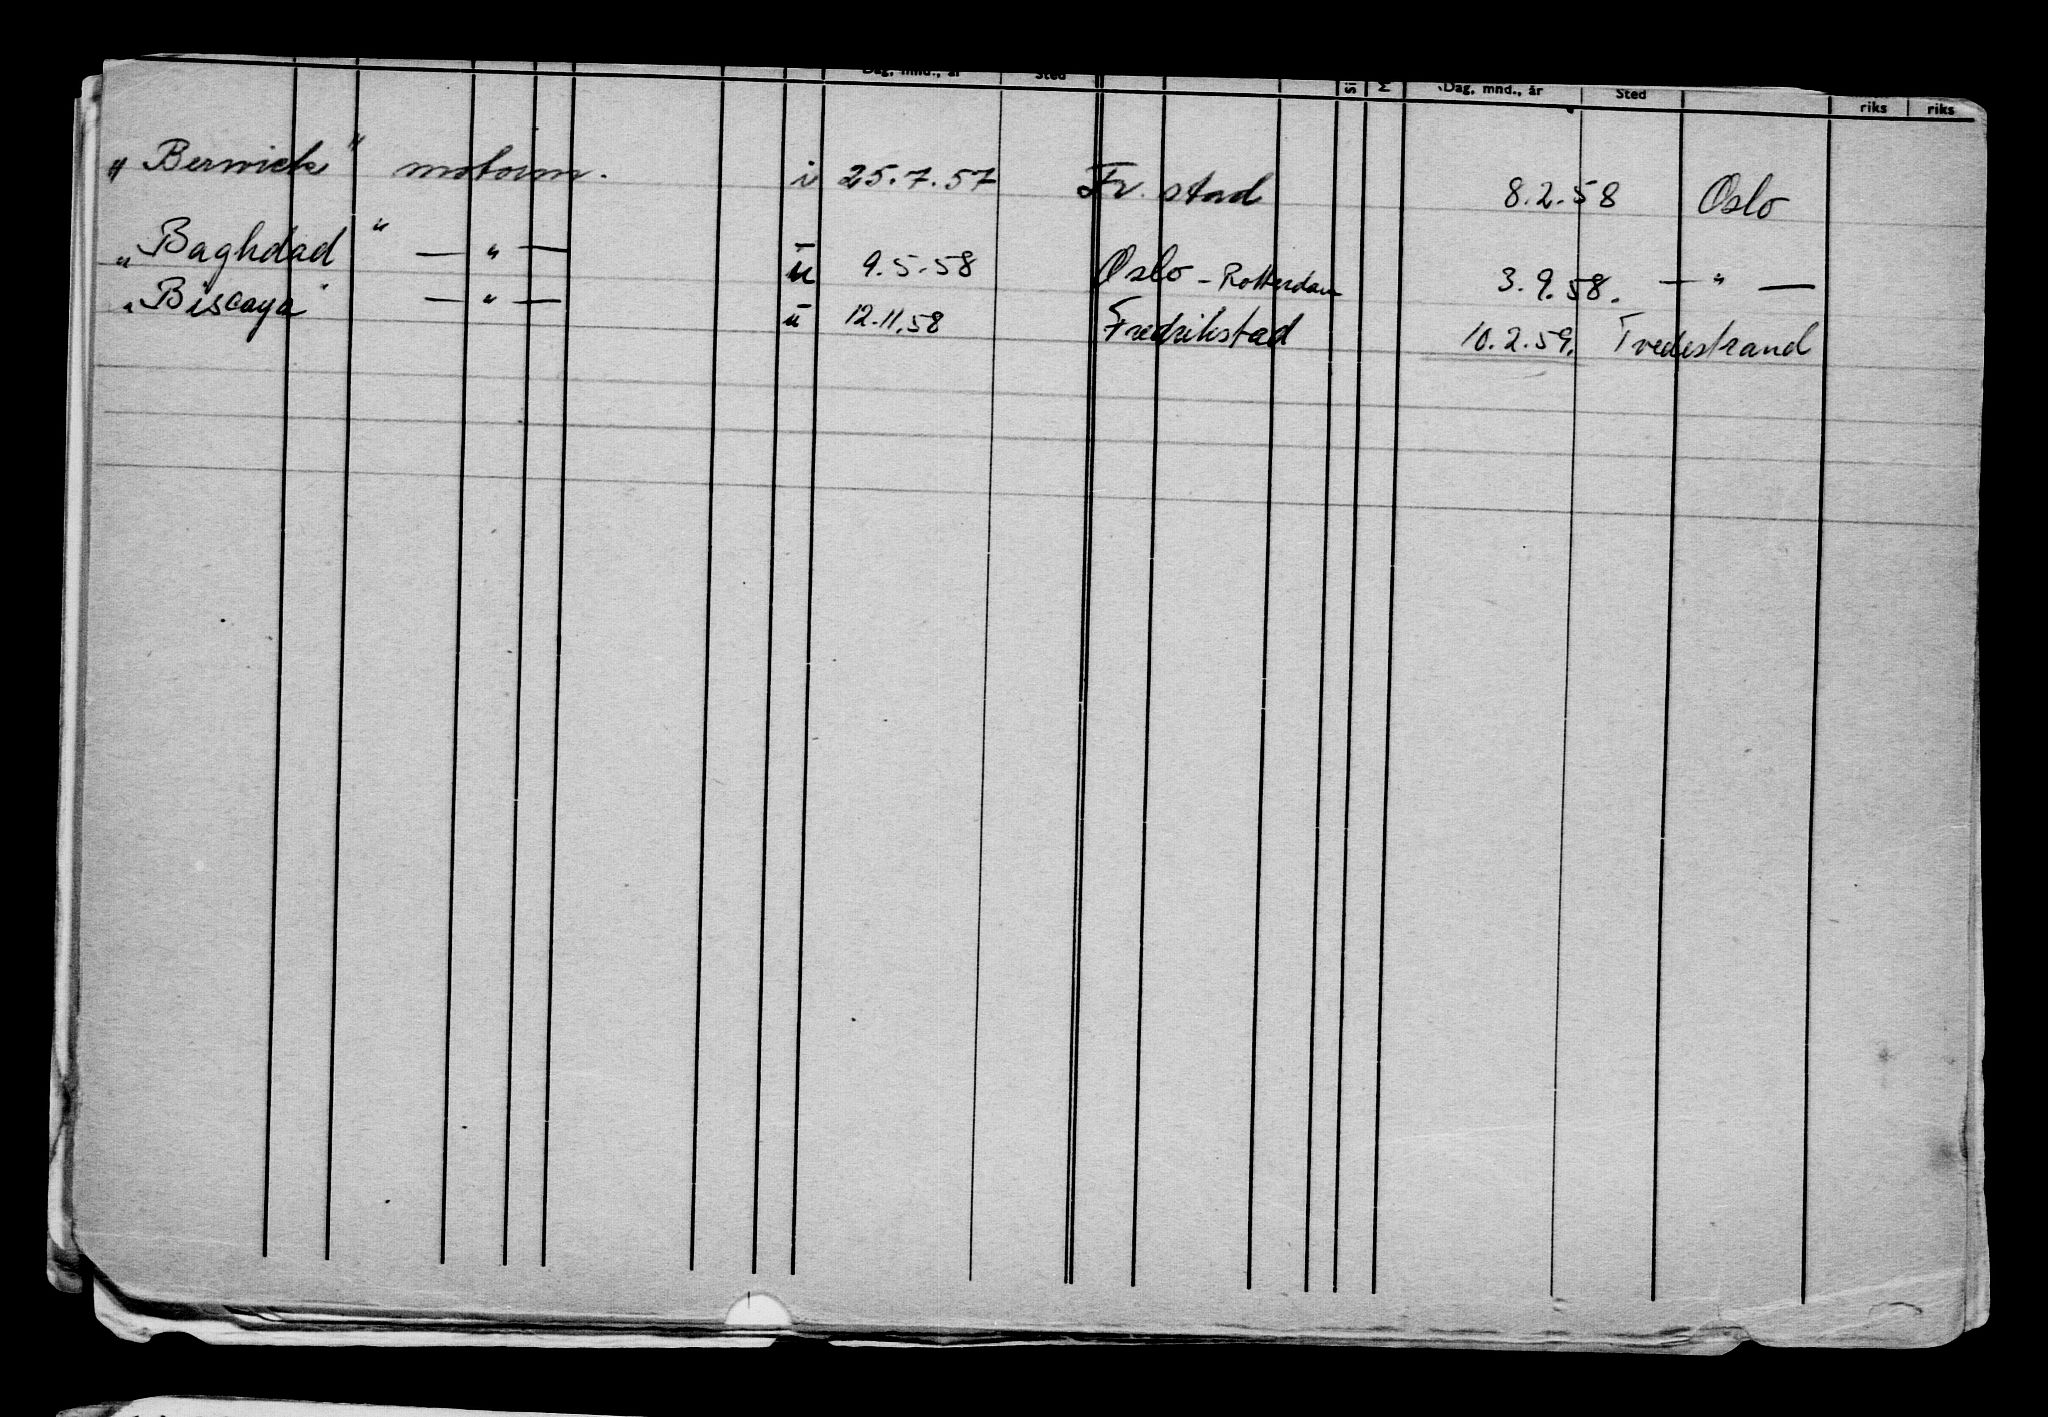 Dag, mnd., år Sted Dag, mnd., år Sted riks riks
„Berwick" motorm. i 25.7.57 Fr. stad 8.2.58 Oslo
„Baghdad" — " — u 9.5.58 Oslo - Rotterdam 3.9.58. — " —
„Biscaya" — " — u 12.11.58 Fredrikstad 10.2.59. Tvedestrand